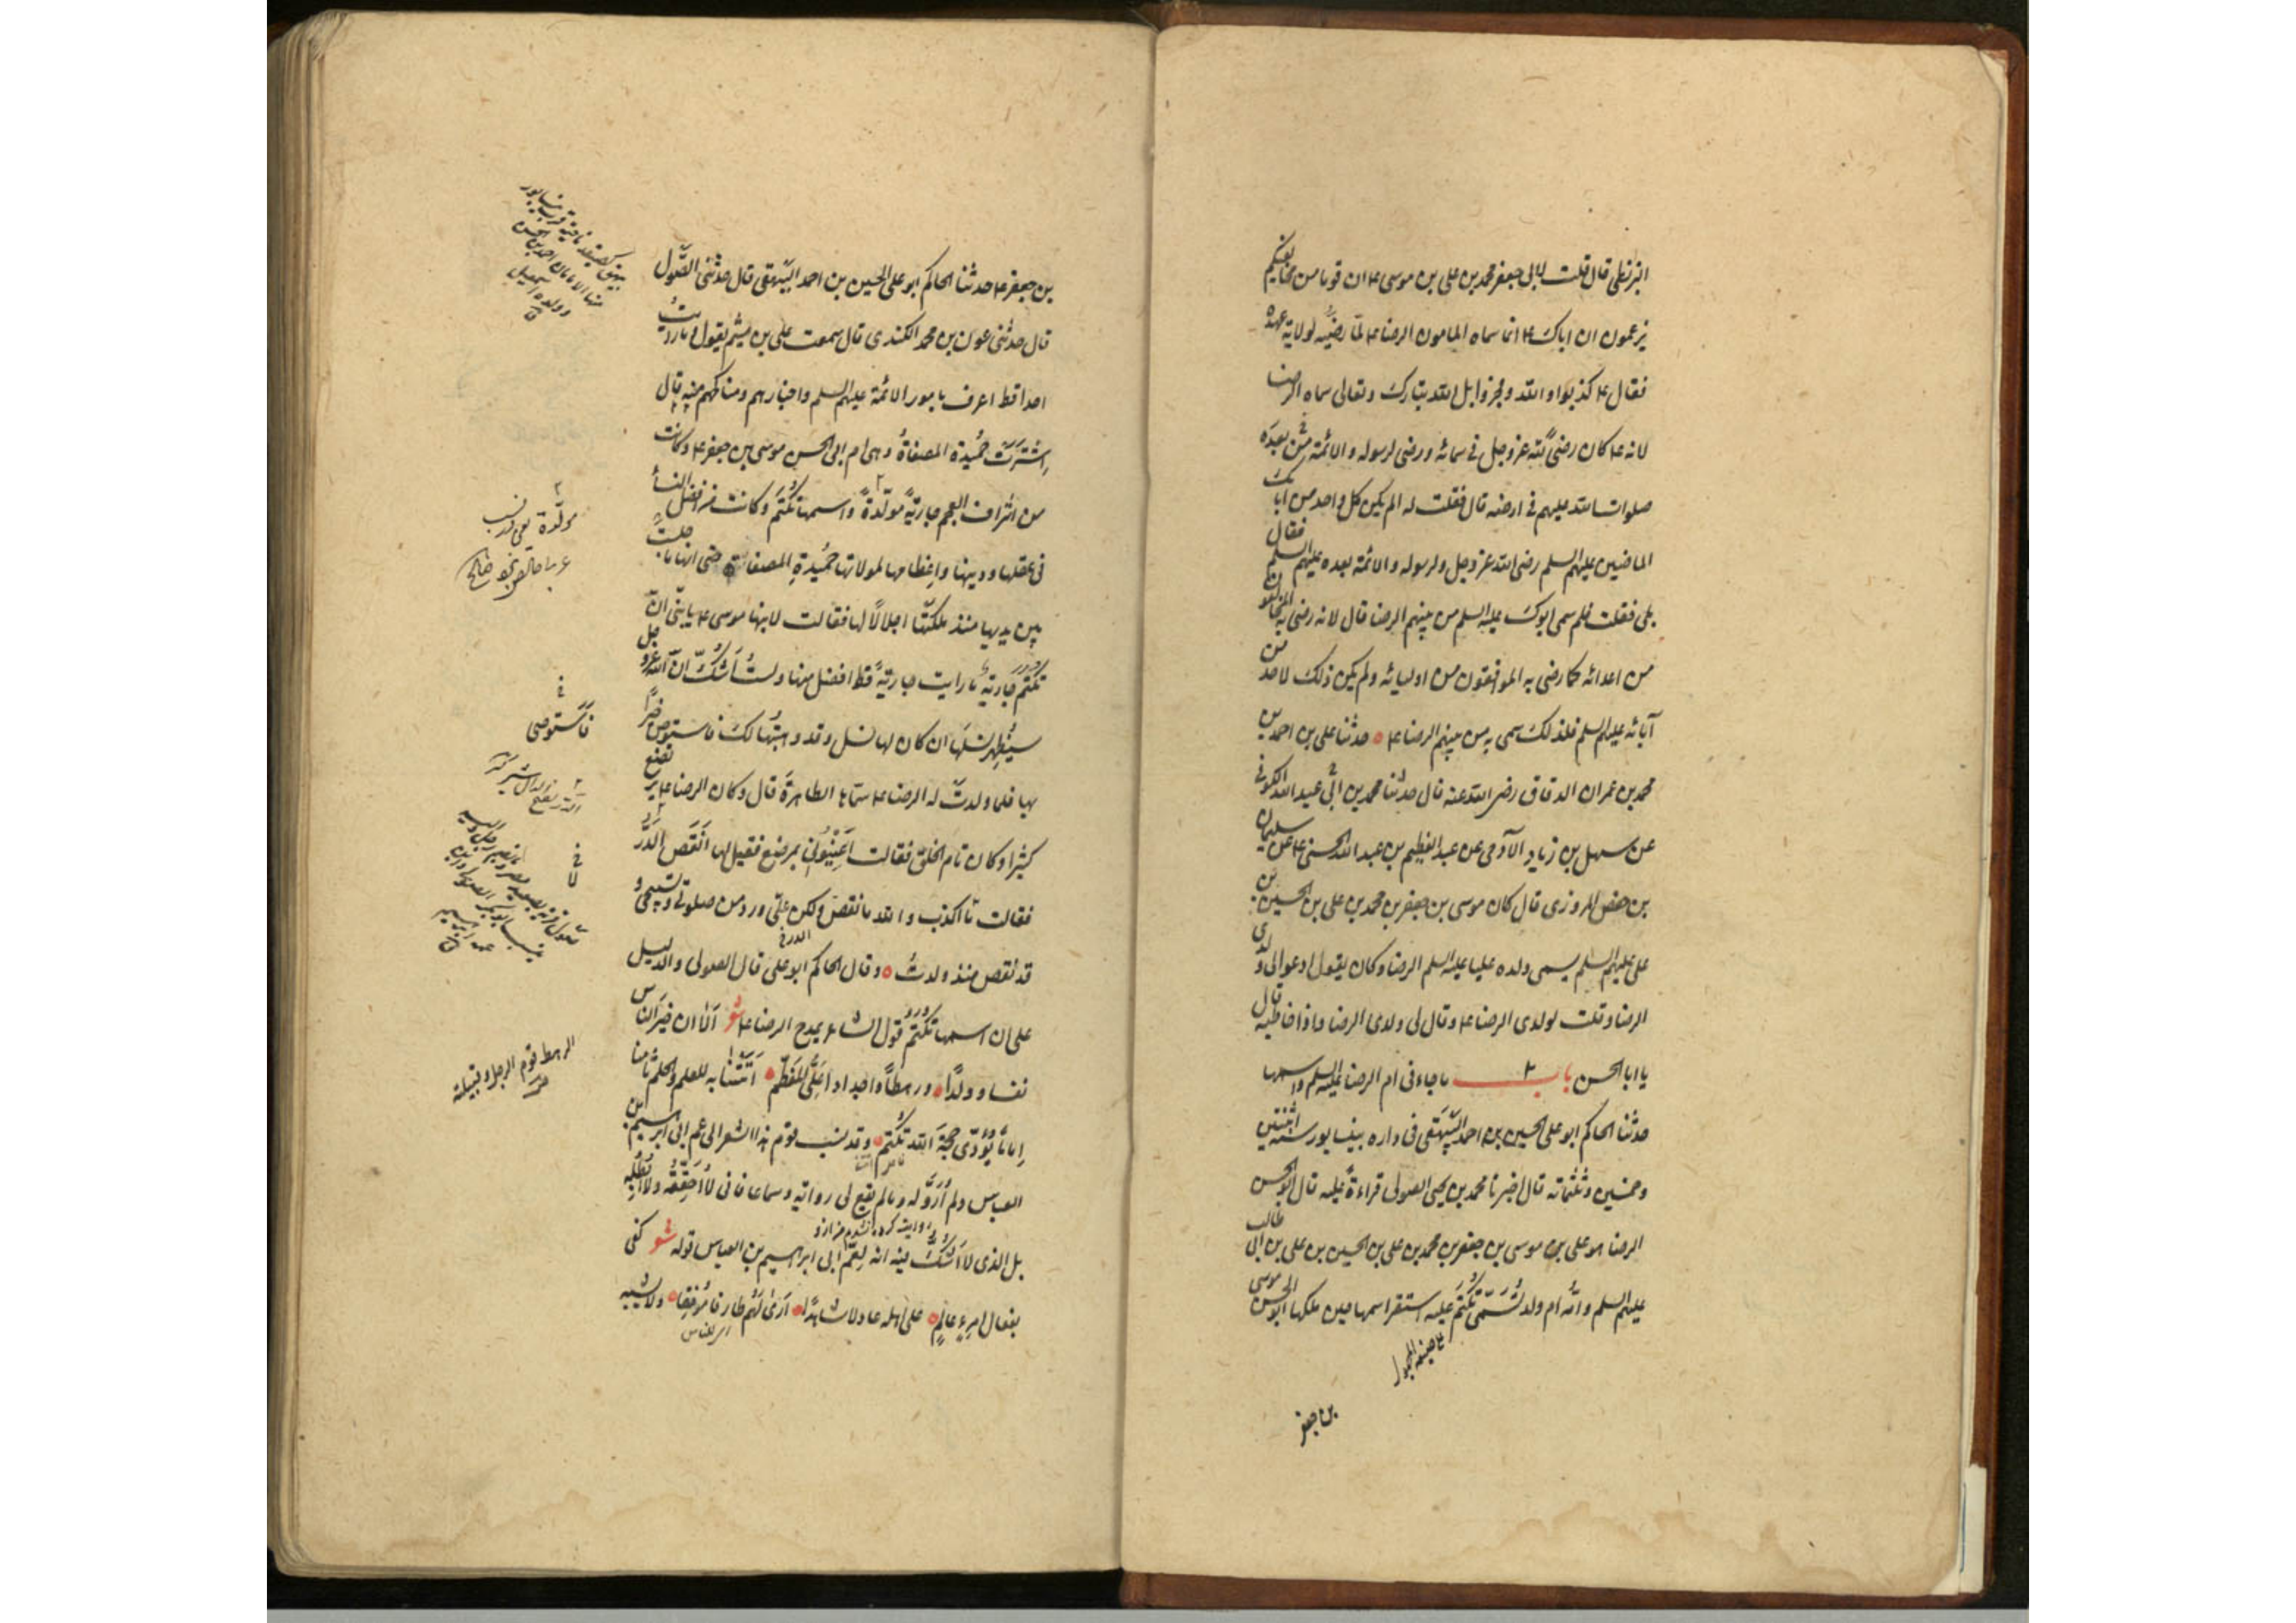 البزنطی قال قلت لابی جعفر محمد بن علی بن موسی ع ان قوما من مخالفیکم
یزعمون ان اباک ع انما سماه المامون الرضا ع لما رضیه لولایة عهده
فقال ع کذبوا و الله و فجروا بل الله تبارک و تعالی سماه الرضا
لانه ع کان رضی لله عز و جل فی سمائه و رضی لرسوله و الائمة من بعده
صلوات الله علیهم فی ارضه قال فقلت له الم یکن کل واحد من آبائک
الماضین علیهم السلم رضی لله عز و جل و لرسوله و الائمة بعده علیهم السلم فقال
بلی فقلت فلم سمی ابوک علیه السلم من بینهم الرضا قال لانه رضی به المخالفون
من اعدائه کما رضی به الموافقون من اولیائه و لم یکن ذلک لاحد من
آبائه علیهم السلم فلذلک سمی به من بینهم الرضا ع حدثنا علی بن احمد بن
محمد بن عمران الدقاق رضی الله عنه قال حدثنا محمد بن ابی عبد الله الکوفی
عن سهل بن زیاد الآدمی عن عبد العظیم بن عبد الله الحسنی ع عن سلیمان
بن حفص المروزی قال کان موسی بن جعفر بن محمد بن علی بن الحسین بن
علی علیهم السلم یسمی ولده علیا علیه السلم الرضا و کان یقول ادعوا لی ولدی
الرضا و قلت لولدی الرضا ع و قال لی ولدی الرضا و اذا خاطبه قال
یا ابا الحسن باب ٢ ما جاء فی ام الرضا علیه السلم و اسمها
حدثنا الحاکم ابو علی الحسین بن احمد البیهقی فی داره بنیسابور سنة اثنتین
و خمسین و ثلثمائه قال اخبرنا محمد بن یحیی الصولی قراءة علیه قال ابو الحسن
الرضا هو علی بن موسی بن جعفر بن محمد بن علی بن الحسین بن علی بن ابی طالب
علیهم السلم و امه ام ولد تسمی تکتم علیه استقر اسمها حین ملکها ابو الحسن موسی
ع صیغة المجهول
بن جعفر
بن جعفر ع حدثنا الحاکم ابو علی الحسین بن احمد البیهقی قال حدثنی الصولی
قال حدثنی عون بن محمد الکندی قال سمعت علی بن میثم یقول و ما رایت
احدا قط اعرف بامور الائمة علیهم السلم و اخبارهم و مناکحهم منه قال
اِشترَت حُمَیدة المصفاةُ و هی ام ابی الحسن موسی بن جعفر ع و کانت
من اشراف العجم جاریةً مولّدةً و اسمها تُکتَم و کانت من افضل النساء
فی عقلها و دینها و اعظامها لمولاتها حُمَیدةِ المصفاة حتی انها ما جلست
بین یدیها منذ ملکتها اجلالًا لها فقالت لابنها موسی ع یا بنی انّ
تکتم جاریةٌ ما رایت جاریةً قط افضل منها و لستُ اَشُکُّ انّ الله عز و جل
سیُظهِر نسلَها ان کان لها نسل و قد وهبتُها لک فاستوص خیرًا
بها فلما ولدت له الرضا ع سمّاها الطاهرةَ قال و کان الرضا ع یرتضع
کثیرا و کان تام الخلق فقالت اَعِینُونی بمرضع فقیل لها اَنَقَصَ الدَّرُّ
فقالت ما اکذب و الله ما نقص و لکن علیّ ورد من صلوتی و تسبیحی و
قد نقص منذ ولدتُ و قال الحاکم ابو علی قال الصولی و الدلیل
علی ان اسمها تُکتَم قول الشاعر یمدح الرضا ع شعر اَلا ان خیرَ الناس
نفسا و ولدًا و رهطاً و اجدادا عَلِیُّ المُعَظَّم اَتَتنا به للعلم و الحلم ثامنا
اِماماً یُؤدّی حجةَ الله تُکتَم و قد نسب قوم هذا الشعر الی عم ابی ابراهیم بن
العباس و لم اَروه له و ما لم یقع لی روایة و سماعا فانی لا اُحَقِّقُه و لا اُبطِلُه
بل الذی لا اَشُکُّ فیه انه لِعَمِّ ابی ابراهیم بن العباس قوله شعر کفی
بفعال امرِءٍ عالمٍ علی اهله عادلا شاهدًا اَری لهم طارفا مُونقا و لا یشبه
مولّدة
فاستوصی
الرهط قوم الرجل و قبیلته